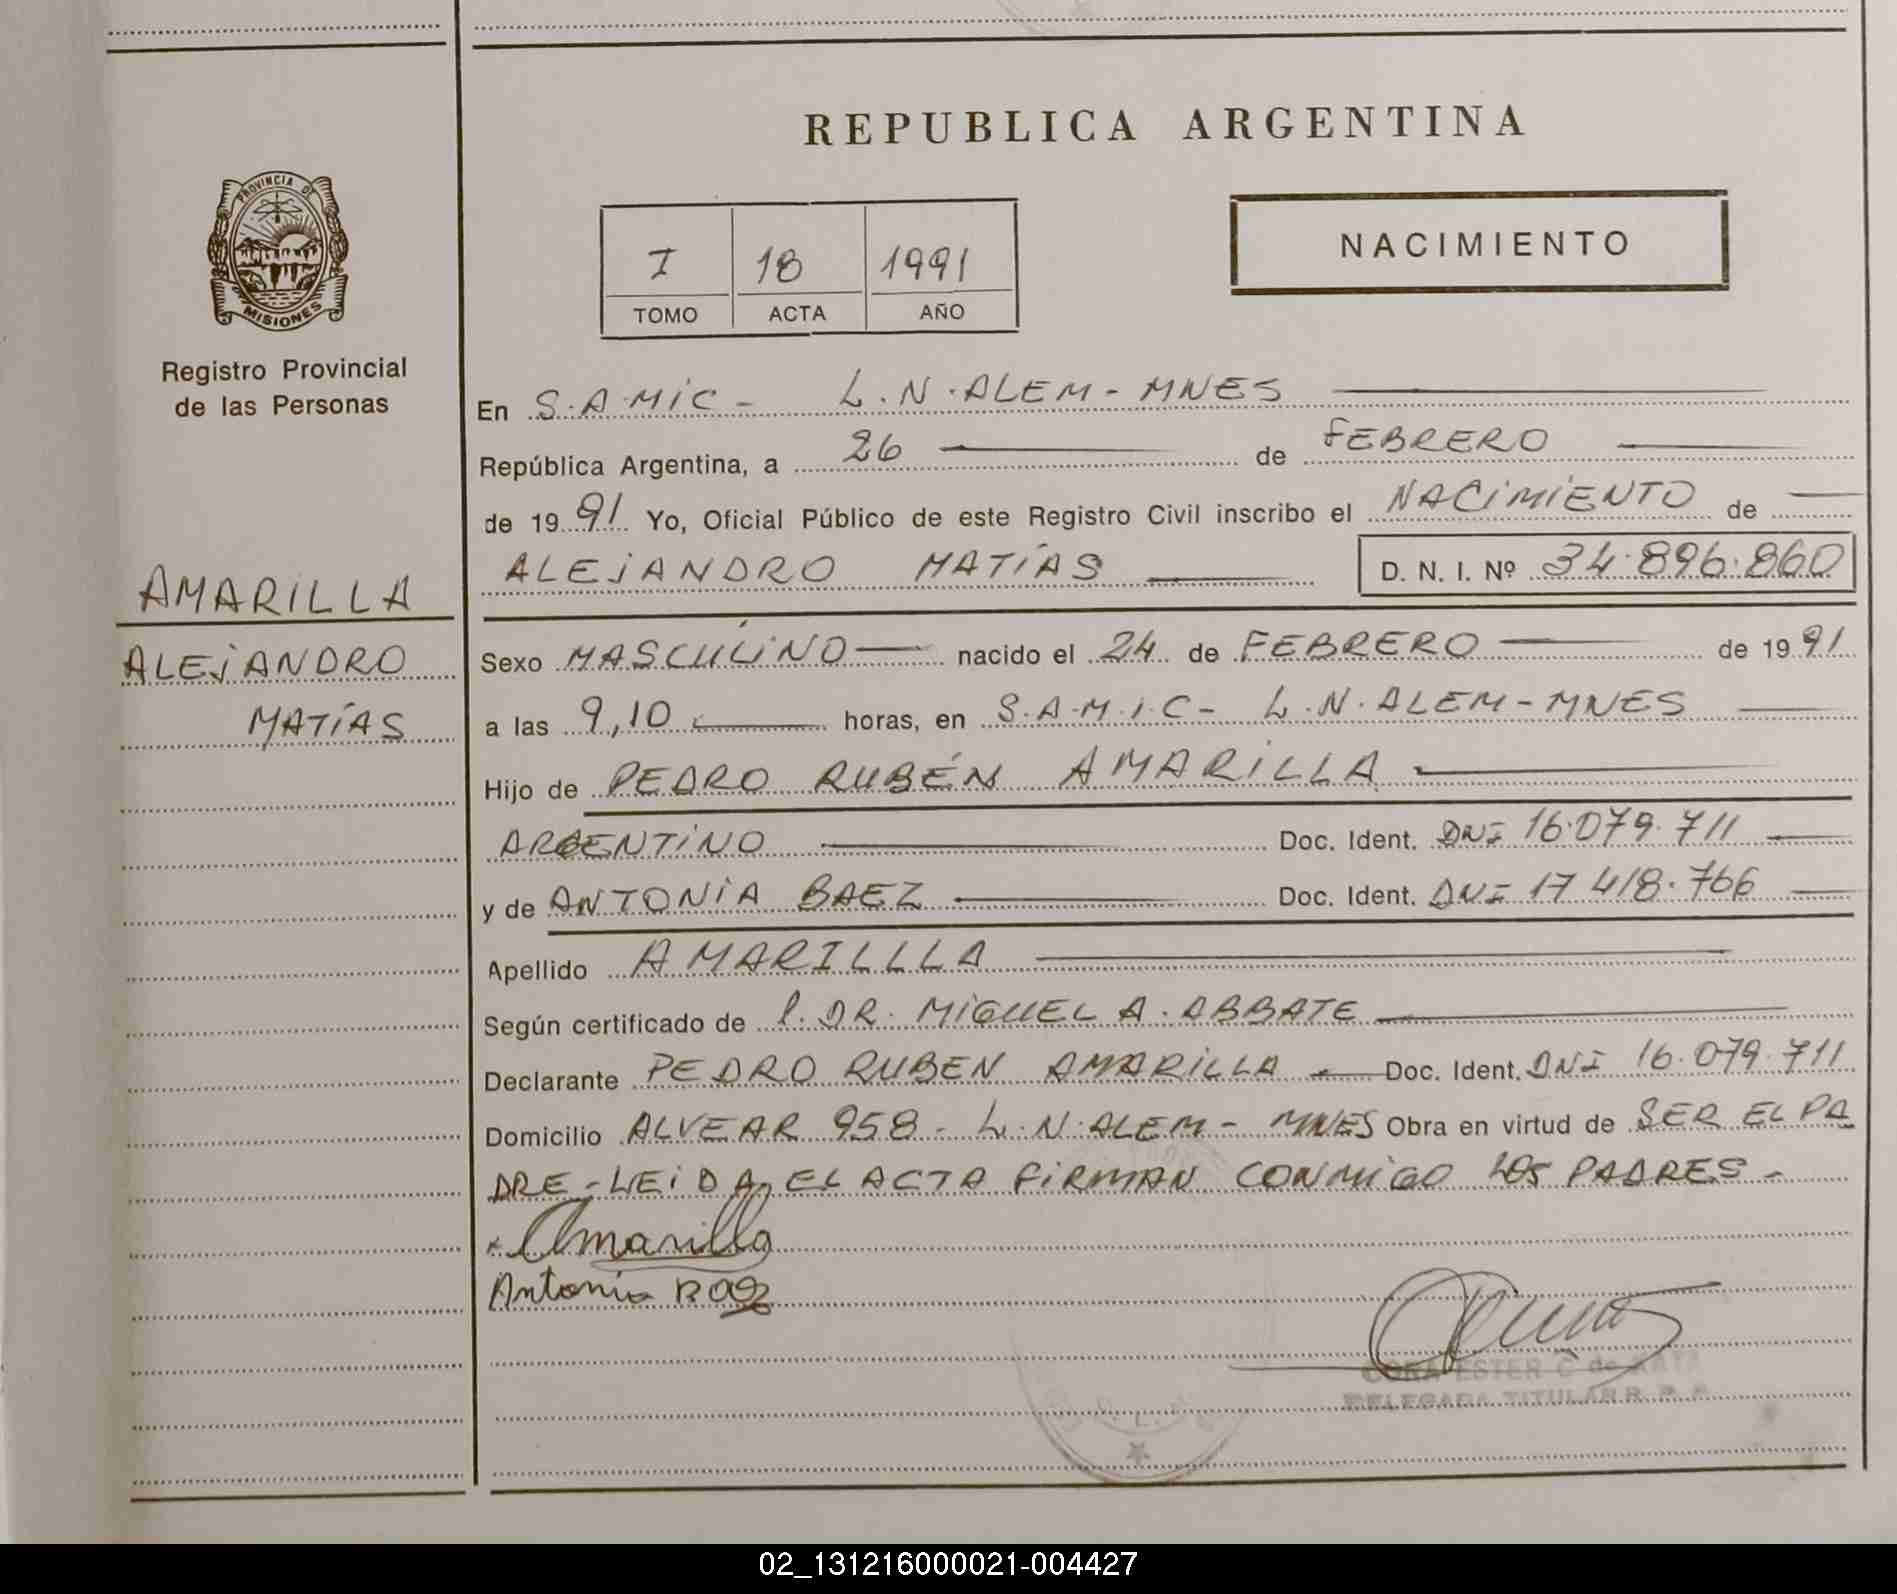 REPUBLICA ARGENTINA
PROVINCIA DE MISIONES
I 18 1991
TOMO ACTA AÑO
NACIMIENTO
Registro Provincial
de las Personas
En S.A.MIC - L.N.ALEM - MNES
República Argentina, a 26 de FEBRERO
de 1991 Yo, Oficial Público de este Registro Civil inscribo el NACIMIENTO de
ALEJANDRO MATÍAS D. N. I. Nº 34.896.860
AMARILLA
ALEJANDRO
MATÍAS
Sexo MASCULINO nacido el 24 de FEBRERO de 1991
a las 9,10 horas, en S.A.M.I.C - L.N.ALEM - MNES
Hijo de PEDRO RUBÉN AMARILLA
ARGENTINO Doc. Ident. DNI 16.079.711
y de ANTONIA BAEZ Doc. Ident. DNI 17.418.766
Apellido AMARILLLA
Según certificado de l. DR. MIGUEL A. ABBATE
Declarante PEDRO RUBEN AMARILLA Doc. Ident. DNI 16.079.711
Domicilio ALVEAR 958 - L.N.ALEM - MNES Obra en virtud de SER EL PA
DRE - LEIDA EL ACTA FIRMAN CONMIGO LOS PADRES -
Amarilla
Antonia Baez
ESTER C de
DELEGADA TITULAR R. P. P.
02_131216000021-004427